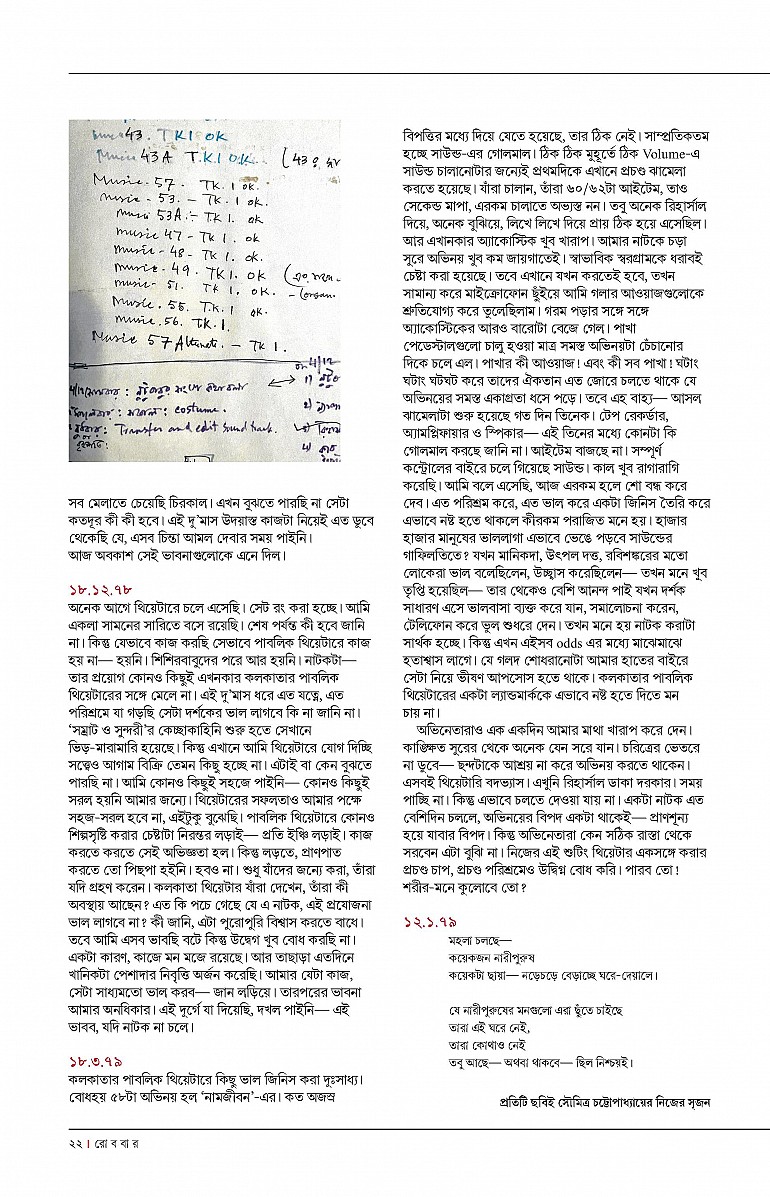 Music 43. TK1 OK
Music 43A T.K.1 O.K. (43
Music - 57. - TK. 1 ok.
Music. - 53. - TK. 1 ok.
Music 53A. - TK. 1 ok.
Music 47 - TK. 1. ok
Music - 48 - TK 1 ok.
Music - 49. TK. 1 ok
Music - 51. TK 1 ok.
Music. 55. T.K. 1 ok.
Music. 56. TK. 1.
Music 57 - TK 1.
on 4/12
costume.
Transfer and edit sound track.
সব মেলাতে চেয়েছি চিরকাল। এখন বুঝতে পারছি না সেটা
কতদূর কী কী হবে। এই দু'মাস উদয়াস্ত কাজটা নিয়েই এত ডুবে
থেকেছি যে, এসব চিন্তা আমল দেবার সময় পাইনি।
আজ অবকাশ সেই ভাবনাগুলোকে এনে দিল।
১৮.১২.৭৮
অনেক আগে থিয়েটারে চলে এসেছি। সেট রং করা হচ্ছে। আমি
একলা সামনের সারিতে বসে রয়েছি। শেষ পর্যন্ত কী হবে জানি
না। কিন্তু যেভাবে কাজ করছি সেভাবে পাবলিক থিয়েটারে কাজ
হয় না— হয়নি। শিশিরবাবুদের পরে আর হয়নি। নাটকটা—
তার প্রয়োগ কোনও কিছুই এখনকার কলকাতার পাবলিক
থিয়েটারের সঙ্গে মেলে না। এই দু'মাস ধরে এত যত্নে, এত
পরিশ্রমে যা গড়ছি সেটা দর্শকের ভাল লাগবে কি না জানি না।
'সম্রাট ও সুন্দরী'র কেচ্ছাকাহিনি শুরু হতে সেখানে
ভিড়-মারামারি হয়েছে। কিন্তু এখানে আমি থিয়েটারে যোগ দিচ্ছি
সত্ত্বেও আগাম বিক্রি তেমন কিছু হচ্ছে না। এটাই বা কেন বুঝতে
পারছি না। আমি কোনও কিছুই সহজে পাইনি— কোনও কিছুই
সরল হয়নি আমার জন্যে। থিয়েটারের সফলতাও আমার পক্ষে
সহজ-সরল হবে না, এইটুকু বুঝেছি। পাবলিক থিয়েটারে কোনও
শিল্পসৃষ্টি করার চেষ্টাটা নিরন্তর লড়াই— প্রতি ইঞ্চি লড়াই। কাজ
করতে করতে সেই অভিজ্ঞতা হল। কিন্তু লড়তে, প্রাণপাত
করতে তো পিছপা হইনি। হবও না। শুধু যাঁদের জন্যে করা, তাঁরা
যদি গ্রহণ করেন। কলকাতা থিয়েটার যাঁরা দেখেন, তাঁরা কী
অবস্থায় আছেন? এত কি পচে গেছে যে এ নাটক, এই প্রযোজনা
ভাল লাগবে না? কী জানি, এটা পুরোপুরি বিশ্বাস করতে বাধে।
তবে আমি এসব ভাবছি বটে কিন্তু উদ্বেগ খুব বোধ করছি না।
একটা কারণ, কাজে মন মজে রয়েছে। আর তাছাড়া এতদিনে
খানিকটা পেশাদার নিবৃত্তি অর্জন করেছি। আমার যেটা কাজ,
সেটা সাধ্যমতো ভাল করব— জান লড়িয়ে। তারপরের ভাবনা
আমার অনধিকার। এই দুর্গে ঘা দিয়েছি, দখল পাইনি— এই
ভাবব, যদি নাটক না চলে।
১৮.৩.৭৯
কলকাতার পাবলিক থিয়েটারে কিছু ভাল জিনিস করা দুঃসাধ্য।
বোধহয় ৫৮টা অভিনয় হল 'নামজীবন'-এর। কত অজস্র
বিপত্তির মধ্যে দিয়ে যেতে হয়েছে, তার ঠিক নেই। সাম্প্রতিকতম
হচ্ছে সাউন্ড-এর গোলমাল। ঠিক ঠিক মুহূর্তে ঠিক Volume-এ
সাউন্ড চালানোটার জন্যেই প্রথমদিকে এখানে প্রচণ্ড ঝামেলা
করতে হয়েছে। যাঁরা চালান, তাঁরা ৬০/৬২টা আইটেম, তাও
সেকেন্ড মাপা, এরকম চালাতে অভ্যস্ত নন। তবু অনেক রিহার্সাল
দিয়ে, অনেক বুঝিয়ে, লিখে লিখে দিয়ে প্রায় ঠিক হয়ে এসেছিল।
আর এখানকার অ্যাকোস্টিক খুব খারাপ। আমার নাটকে চড়া
সুরে অভিনয় খুব কম জায়গাতেই। স্বাভাবিক স্বরগ্রামকে ধরাবই
চেষ্টা করা হয়েছে। তবে এখানে যখন করতেই হবে, তখন
সামান্য করে মাইক্রোফোন ছুঁইয়ে আমি গলার আওয়াজগুলোকে
শ্রুতিযোগ্য করে তুলেছিলাম। গরম পড়ার সঙ্গে সঙ্গে
অ্যাকোস্টিকের আরও বারোটা বেজে গেল। পাখা
পেডেস্টালগুলো চালু হওয়া মাত্র সমস্ত অভিনয়টা চেঁচানোর
দিকে চলে এল। পাখার কী আওয়াজ! এবং কী সব পাখা! ঘটাং
ঘটাং ঘটঘট করে তাদের ঐকতান এত জোরে চলতে থাকে যে
অভিনয়ের সমস্ত একাগ্রতা ধসে পড়ে। তবে এহ বাহ্য— আসল
ঝামেলাটা শুরু হয়েছে গত দিন তিনেক। টেপ রেকর্ডার,
অ্যামপ্লিফায়ার ও স্পিকার— এই তিনের মধ্যে কোনটা কি
গোলমাল করছে জানি না। আইটেম বাজছে না। সম্পূর্ণ
কন্ট্রোলের বাইরে চলে গিয়েছে সাউন্ড। কাল খুব রাগারাগি
করেছি। আমি বলে এসেছি, আজ এরকম হলে শো বন্ধ করে
দেব। এত পরিশ্রম করে, এত ভাল করে একটা জিনিস তৈরি করে
এভাবে নষ্ট হতে থাকলে কীরকম পরাজিত মনে হয়। হাজার
হাজার মানুষের ভাললাগা এভাবে ভেঙে পড়বে সাউন্ডের
গাফিলতিতে? যখন মানিকদা, উৎপল দত্ত, রবিশঙ্করের মতো
লোকেরা ভাল বলেছিলেন, উচ্ছ্বাস করেছিলেন— তখন মনে খুব
তৃপ্তি হয়েছিল— তার থেকেও বেশি আনন্দ পাই যখন দর্শক
সাধারণ এসে ভালবাসা ব্যক্ত করে যান, সমালোচনা করেন,
টেলিফোন করে ভুল শুধরে দেন। তখন মনে হয় নাটক করাটা
সার্থক হচ্ছে। কিন্তু এখন এইসব odds এর মধ্যে মাঝেমাঝে
হতাশ্বাস লাগে। যে গলদ শোধরানোটা আমার হাতের বাইরে
সেটা নিয়ে ভীষণ আপসোস হতে থাকে। কলকাতার পাবলিক
থিয়েটারের একটা ল্যান্ডমার্ককে এভাবে নষ্ট হতে দিতে মন
চায় না।
অভিনেতারাও এক একদিন আমার মাথা খারাপ করে দেন।
কাঙ্ক্ষিত সুরের থেকে অনেক যেন সরে যান। চরিত্রের ভেতরে
না ডুবে— ছন্দটাকে আশ্রয় না করে অভিনয় করতে থাকেন।
এসবই থিয়েটারি বদভ্যাস। এখুনি রিহার্সাল ডাকা দরকার। সময়
পাচ্ছি না। কিন্তু এভাবে চলতে দেওয়া যায় না। একটা নাটক এত
বেশিদিন চললে, অভিনয়ের বিপদ একটা থাকেই— প্রাণশূন্য
হয়ে যাবার বিপদ। কিন্তু অভিনেতারা কেন সঠিক রাস্তা থেকে
সরবেন এটা বুঝি না। নিজের এই শুটিং থিয়েটার একসঙ্গে করার
প্রচণ্ড চাপ, প্রচণ্ড পরিশ্রমেও উদ্বিগ্ন বোধ করি। পারব তো!
শরীর-মনে কুলোবে তো?
১২.১.৭৯
মহলা চলছে—
কয়েকজন নারীপুরুষ
কয়েকটা ছায়া— নড়েচড়ে বেড়াচ্ছে ঘরে-দেয়ালে।
যে নারীপুরুষের মনগুলো এরা ছুঁতে চাইছে
তারা এই ঘরে নেই,
তারা কোথাও নেই
তবু আছে— অথবা থাকবে— ছিল নিশ্চয়ই।
প্রতিটি ছবিই সৌমিত্র চট্টোপাধ্যায়ের নিজের সৃজন
২২ । রো ব বা র